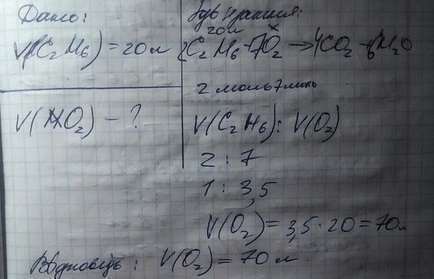 Дано:
V(C2H6) = 20л
V(O2) - ?
Розв'язання:
20л x
2C2H6 + 7O2 → 4CO2 + 6H2O
2 моль 7 моль
V(C2H6) : V(O2)
2 : 7
1 : 3,5
V(O2) = 3,5 · 20 = 70л
Відповідь: V(O2) = 70 л